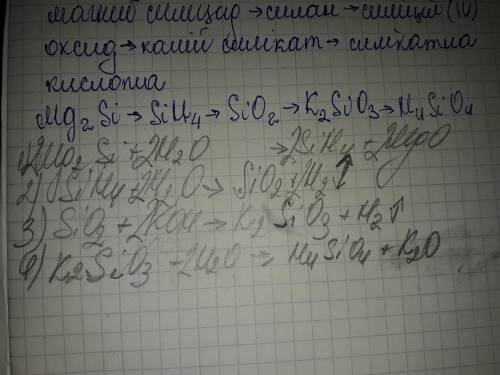 магній силіцид→силан→силіцій (IV)
оксид→калій силікат→силікатна
кислота
Mg₂Si→SiH₄→SiO₂→K₂SiO₃→H₄SiO₄
1) 2Mg₂Si+2H₂O →2SiH₄+2MgO
2) SiH₄+2H₂O→ SiO₂+H₂↑
3) SiO₂+2KOH→K₂SiO₃+H₂↑
4) K₂SiO₃-2H₂O → H₄SiO₄+K₂O